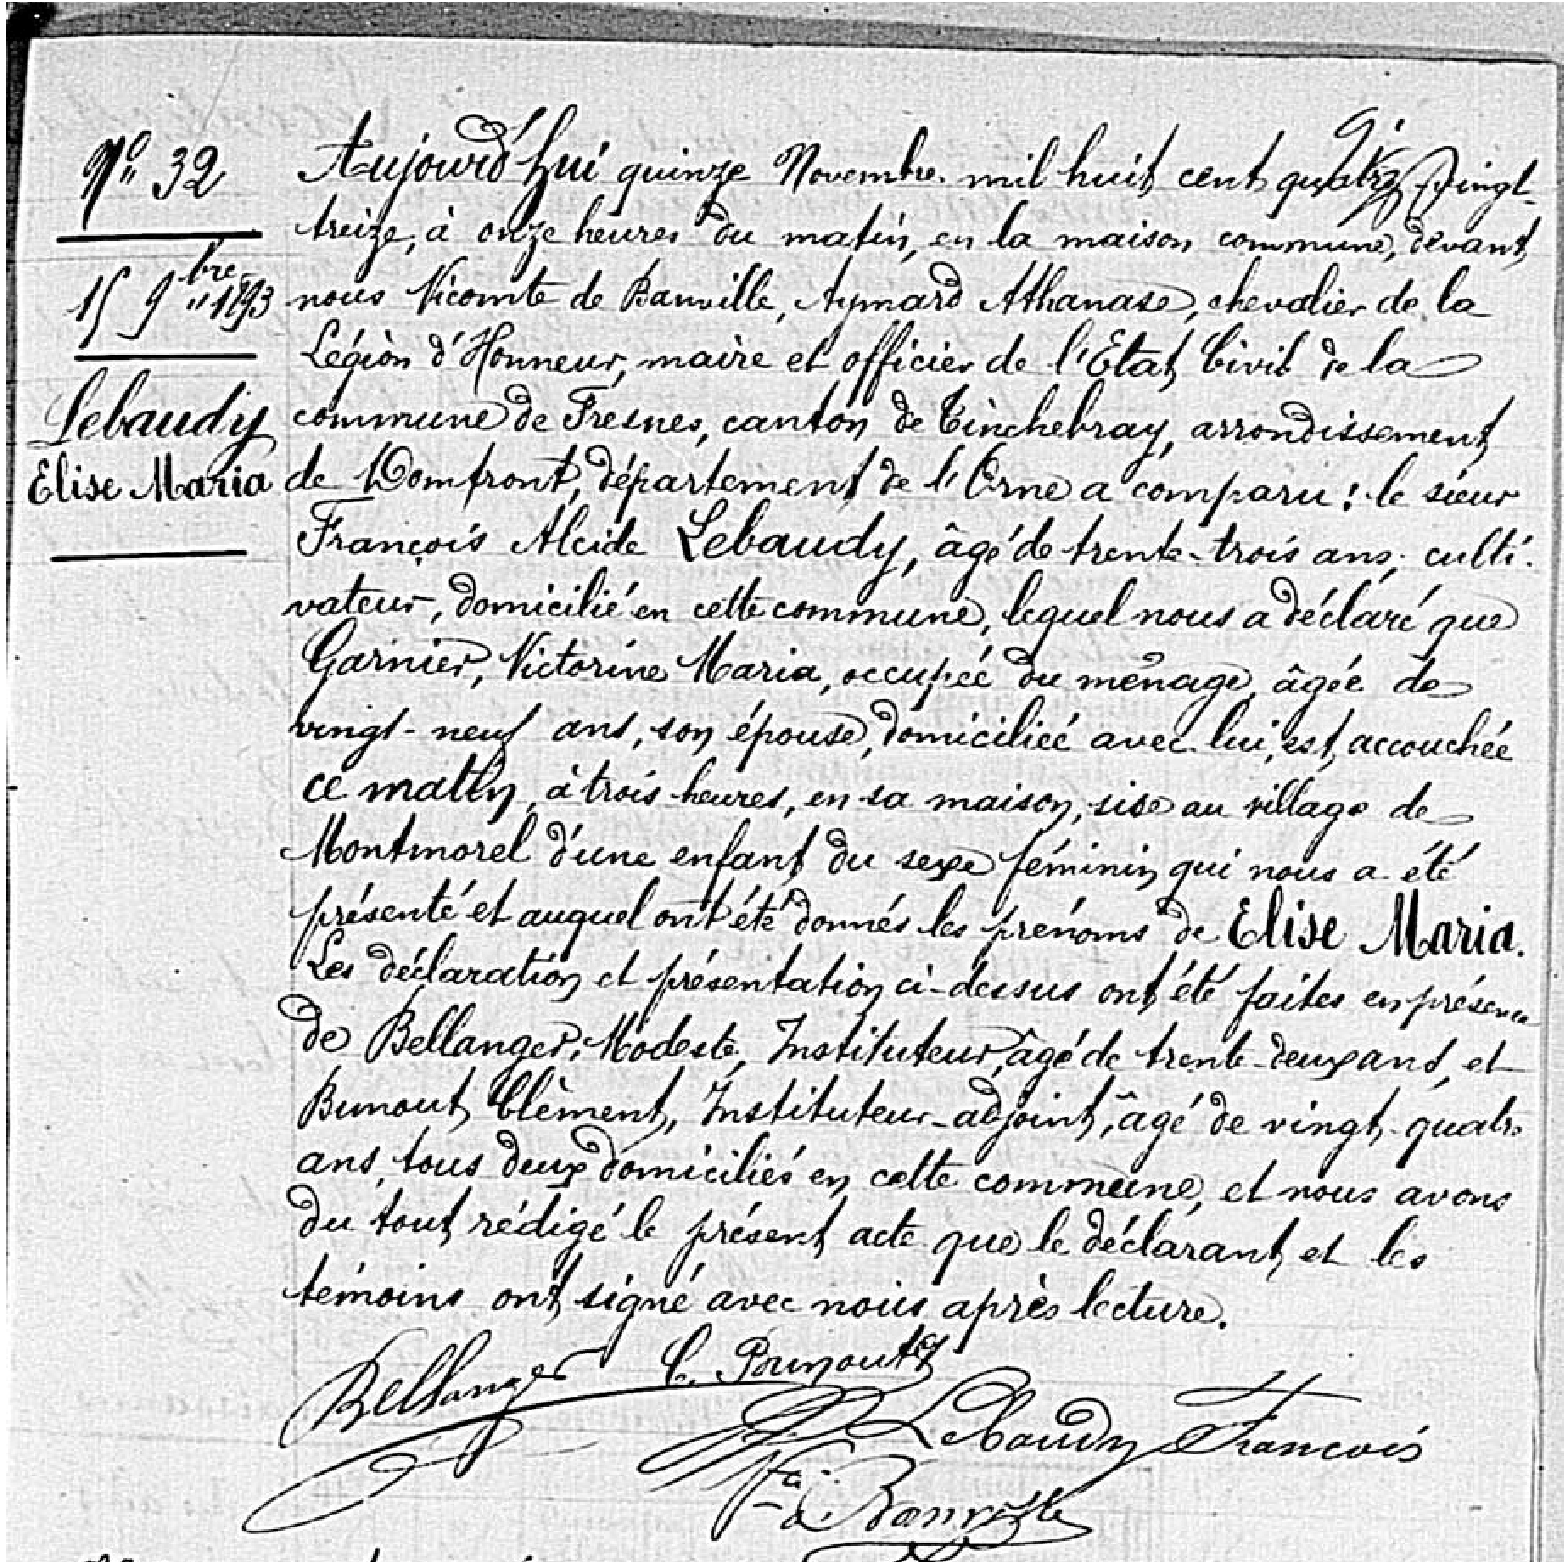 N° 32
15 9bre 1893
Lebaudy
Elise Maria
Aujourd'hui quinze Novembre mil huit cent quatre vingt-
treize, à onze heures du matin, en la maison commune, devant
nous Vicomte de Banville, Aymard Athanase, chevalier de la
Légion d'Honneur, maire et officier de l'Etat Civil de la
commune de Fresnes, canton de Tinchebray, arrondissement
de Domfront, département de l'Orne a comparu : le sieur
François Alcide Lebaudy, âgé de trente-trois ans, culti-
vateur, domicilié en cette commune, lequel nous a déclaré que
Garnier, Victorine Maria, occupée du ménage, âgée de
vingt-neuf ans, son épouse, domiciliée avec lui, est accouchée
ce matin, à trois heures, en sa maison, sise au village de
Montmorel d'une enfant du sexe féminin qui nous a été
présenté et auquel ont été donnés les prénoms de Elise Maria.
Les déclaration et présentation ci-dessus ont été faites en présence
de Bellanger, Modeste, Instituteur, âgé de trente-deux ans, et
Bunout Clément, Instituteur-adjoint, âgé de vingt-quatre
ans, tous deux domiciliés en cette commune, et nous avons
du tout rédigé le présent acte que le déclarant et les
témoins ont signé avec nous après lecture.
Bellanger C. Bunout
Lebaudy François
Vte de Banville